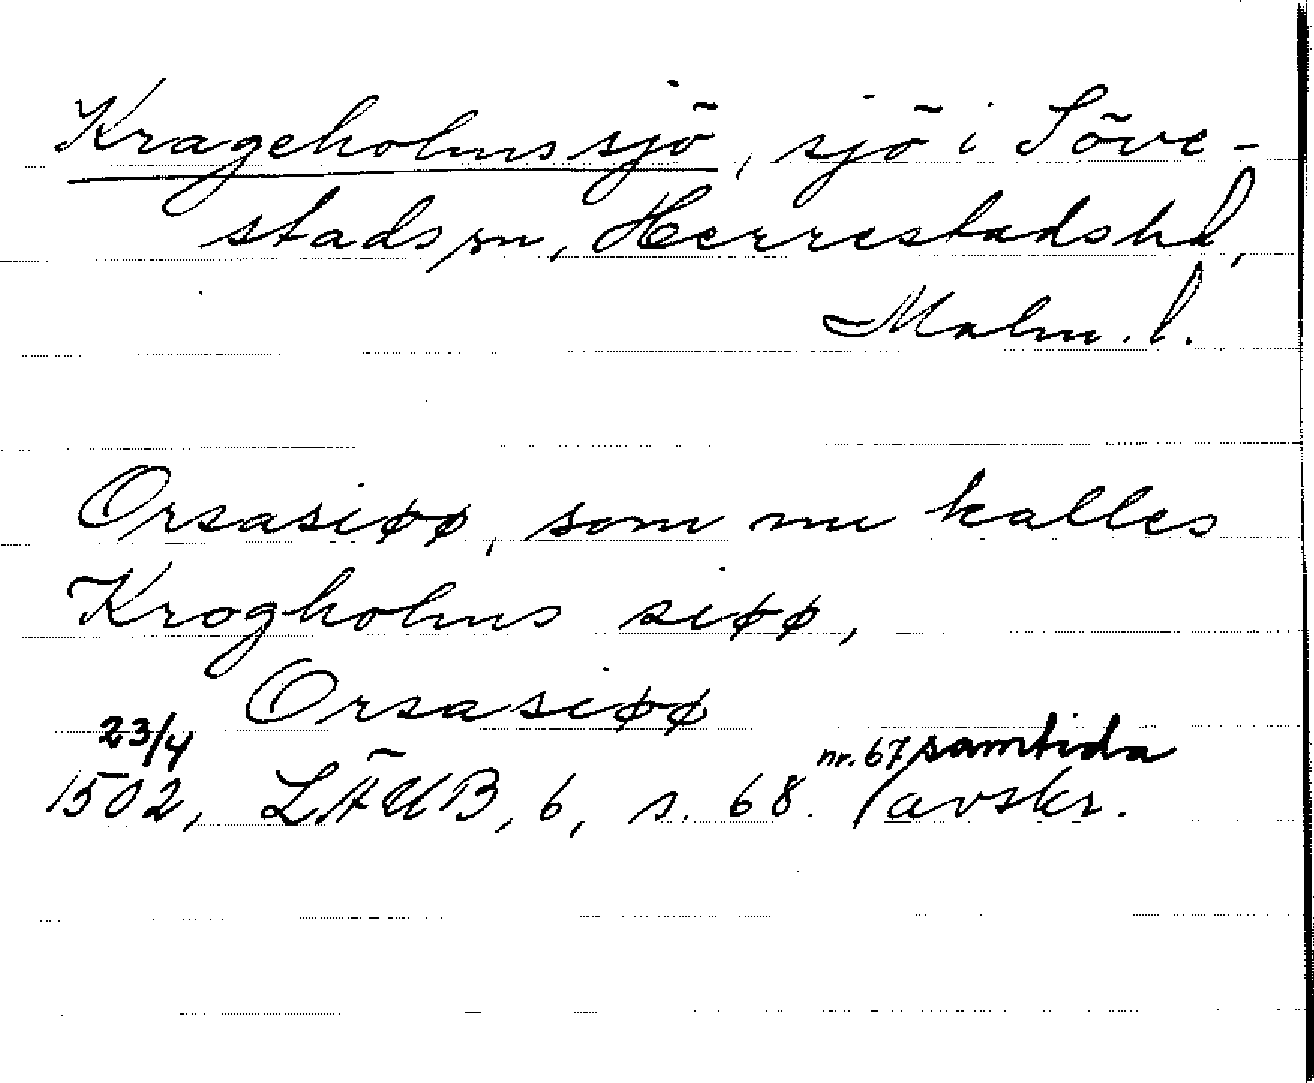 Krageholmssjö, sjö i Söve-
stads sn, Herrestads hd,
Malm. l.
Orsasiøø, som nu kalles
Krogholms siøø,
Orsasiøø
23/4 nr. 67 samtida
1502, LÄUB, 6, s. 68. (avskr.